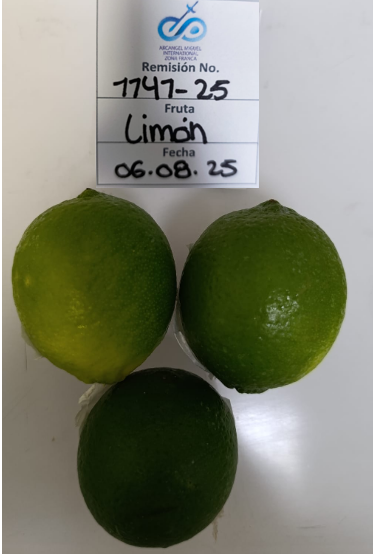 ARCANGEL MIGUEL
INTERNATIONAL
ZONA FRANCA
Remisión No.
1747-25
Fruta
Limón
Fecha
06.08.25